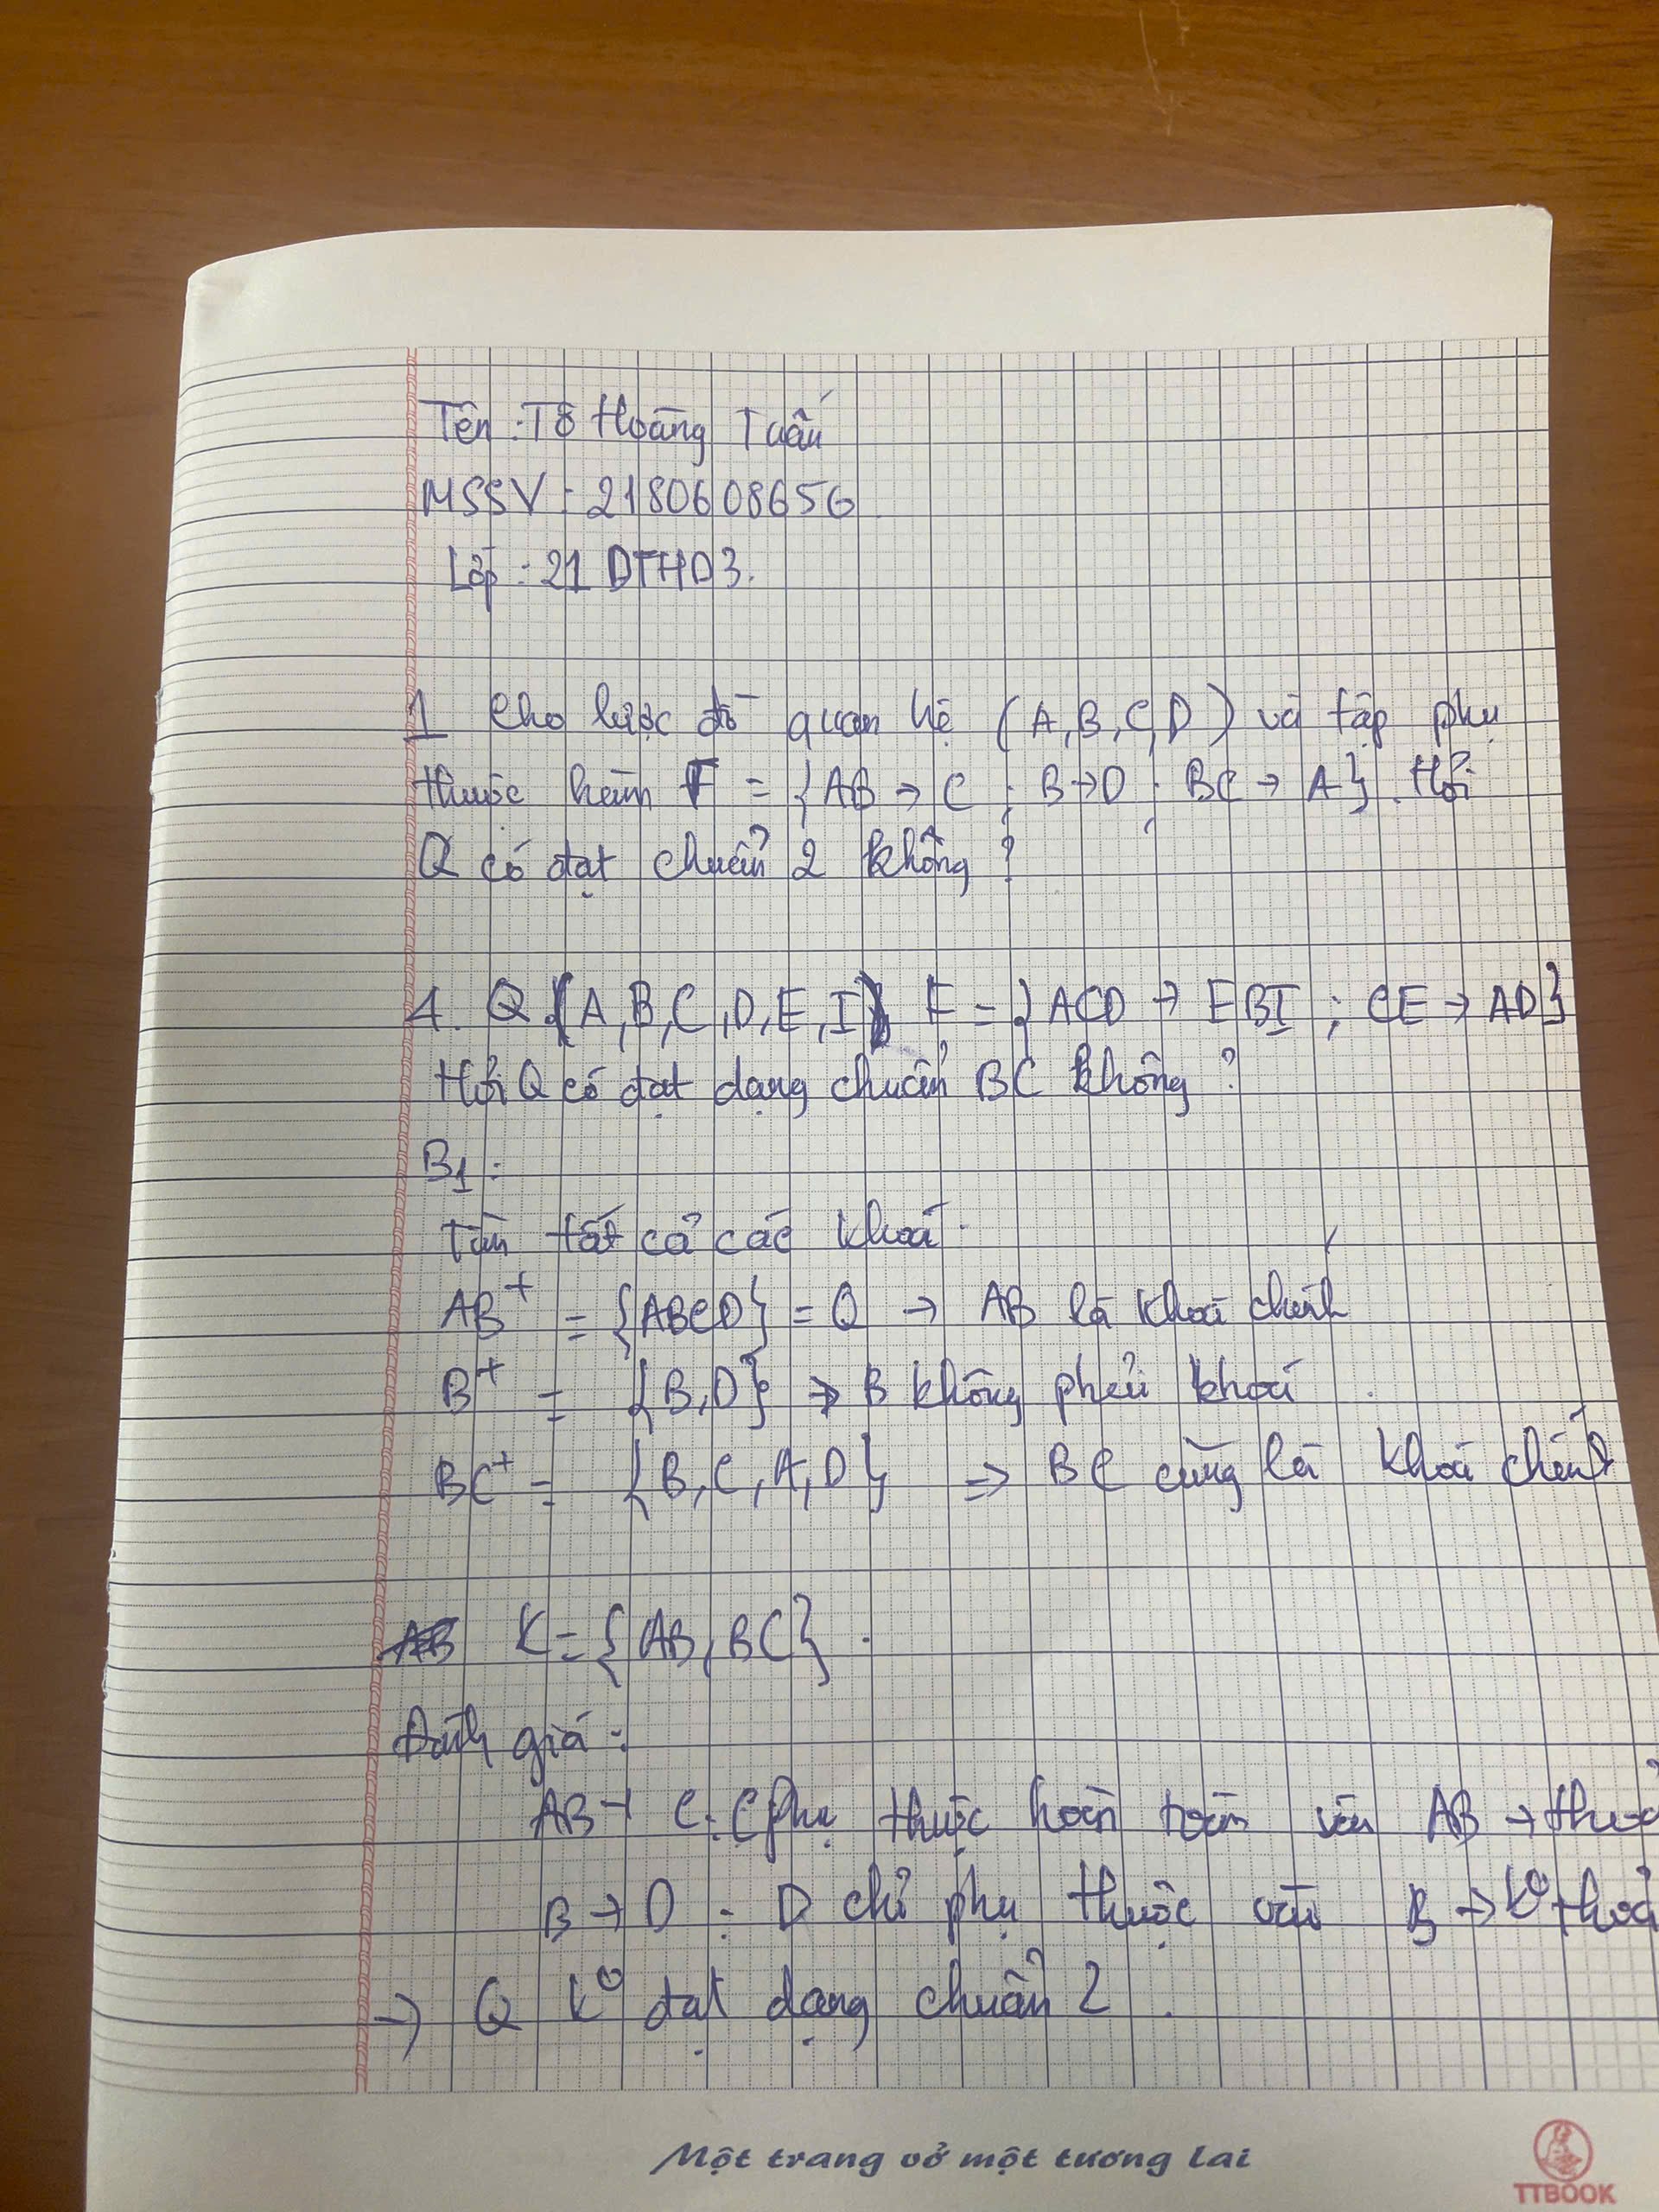 Tên : Tô Hoàng Tuấn
MSSV : 2180608656
Lớp : 21 DTHD3.
1 Cho lược đồ quan hệ (A,B,C,D) và tập phụ
thuộc hàm F = {AB → C ; B→D ; BC → A}. Hỏi
Q có đạt chuẩn 2 không ?
4. Q {A,B,C,D,E,I} F = {ACD → EBI ; CE → AD}
Hỏi Q có đạt dạng chuẩn BC không ?
B1 :
Tìm tất cả các khoá.
AB+ = {ABCD} = Q → AB là khoá chính
B+ = {B,D} → B không phải khoá.
BC+ = {B,C,A,D} => BC cũng là khoá chính
AB K = {AB, BC}.
Đánh giá :
AB → C : C phụ thuộc hoàn toàn vào AB → thoả
B → D : D chỉ phụ thuộc vào B → k° thoả
→ Q k° đạt dạng chuẩn 2.
Một trang vở một tương lai
TTBOOK